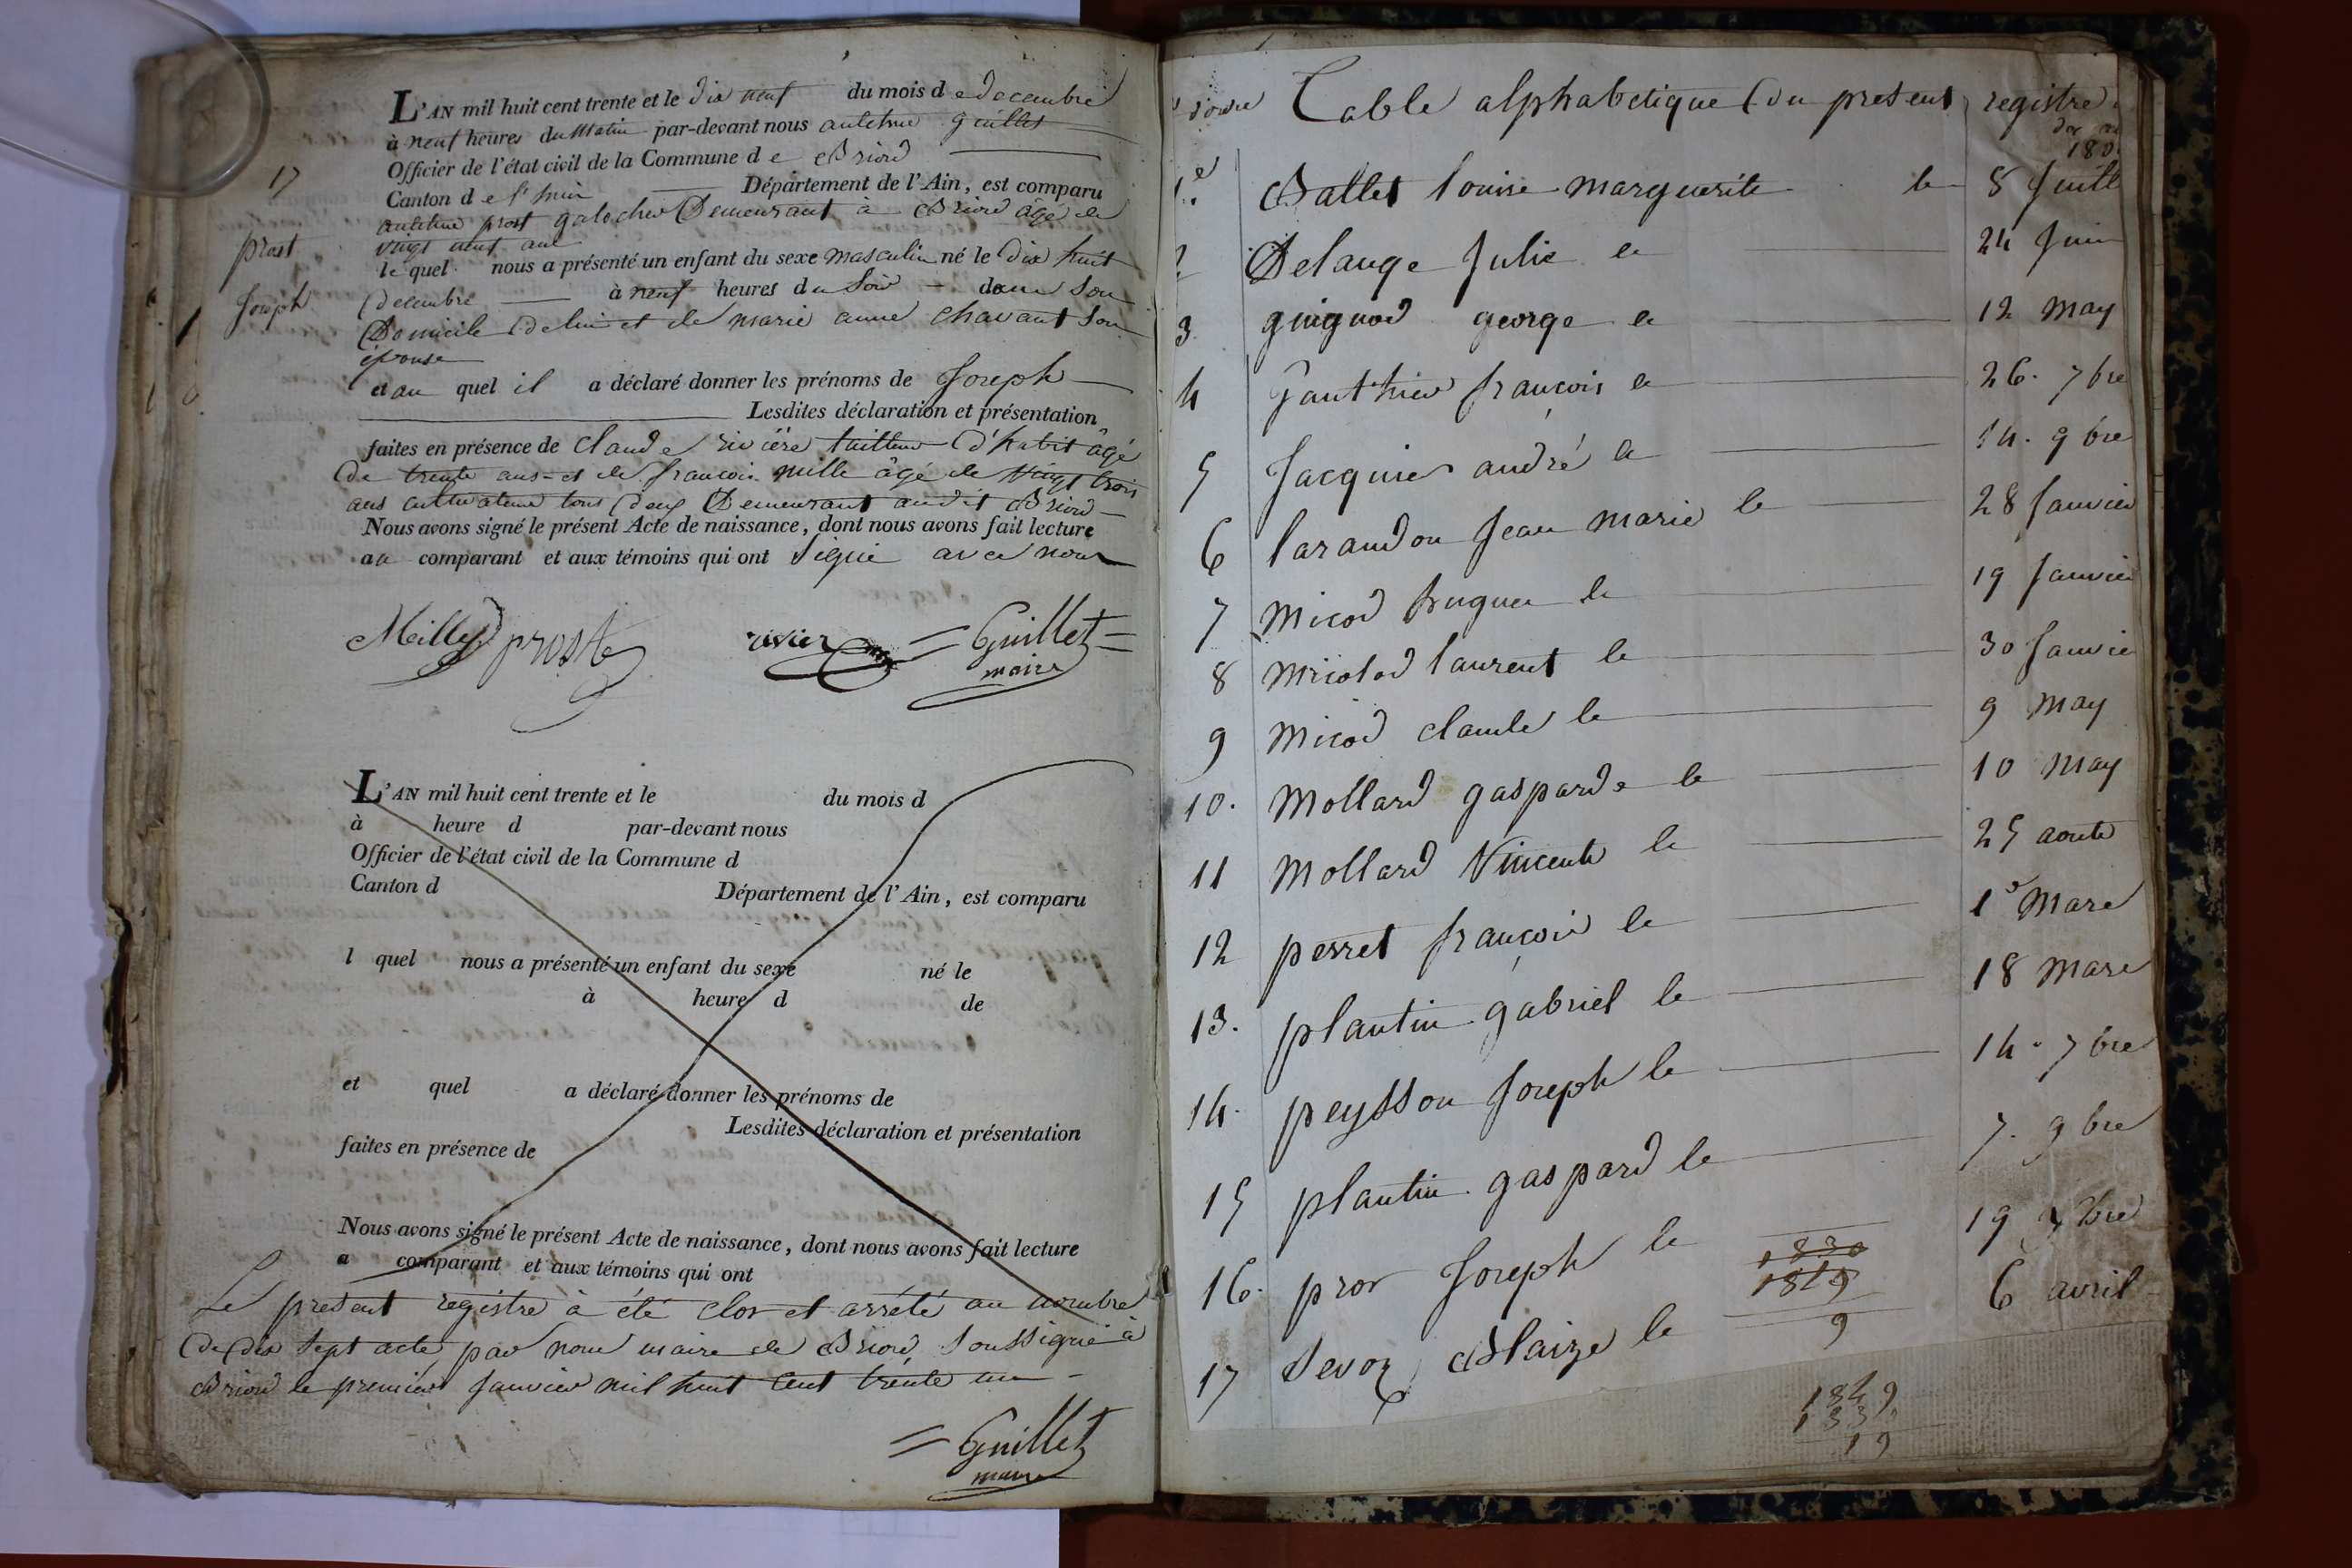 L'AN mil huit cent trente et le dix neuf du mois de decembre
à neuf heures du Matin par-devant nous guillet
Officier de l'état civil de la Commune de Briord
Canton de Département de l'Ain, est comparu
prost Demeurant à Briord âgé de
vingt neuf ans
17
prost
Joseph
le quel nous a présenté un enfant du sexe masculin né le dix huit
decembre à neuf heures du Soir dans Son
Domicile de lui et de marie anne chavant Son
épouse
et au quel il a déclaré donner les prénoms de Joseph
Lesdites déclaration et présentation
faites en présence de claude rivière tailleur d'habit âgé
de trente ans et de francois mille âgé de vingt trois
ans cultivateur tous deux Demeurant audit Briord
Nous avons signé le présent Acte de naissance, dont nous avons fait lecture
au comparant et aux témoins qui ont Signé avec nous
Meilly prost rivier = Guillet =
maire
L'AN mil huit cent trente et le du mois d
à heure d par-devant nous
Officier de l'état civil de la Commune d
Canton d Département de l'Ain, est comparu
l quel nous a présenté un enfant du sexe né le
à heure d de
et quel a déclaré donner les prénoms de
Lesdites déclaration et présentation
faites en présence de
Nous avons signé le présent Acte de naissance, dont nous avons fait lecture
a comparant et aux témoins qui ont
Le present registre à été clos et arrété au nombre
De dix Sept acte par nous maire de Briord Soussigné à
Briord le premier Janvier mil huit Cent trente un
= Guillet
maire
Table alphabetique du present registre
1.e Ballet louise marguerite le 8 Juill
2 Delange Julie le 24 Juin
3. guignod george le 12 May
4 Gauthier francois le 26. 7bre
5 Jacquier andré le 14. 9bre
6 larandon Jean marie le 28 Janvier
7 Micod hugues le 19 Janvier
8 Micolod laurent le 30 Janvie
9 Micod claude le 9 May
10. Mollard gasparde le 10 May
11 Mollard Vincent le 25 aoute
12 perret françois le 1e Mars
13. plantin gabriel le 18 Mars
14. peysson Joseph le 14. 7bre
15 plantin gaspard le 7. 9bre
16. pros Joseph le 19 Xbre
17 Sevoz Blaize le 6 avril
1830
1819
9
1849
1339
19